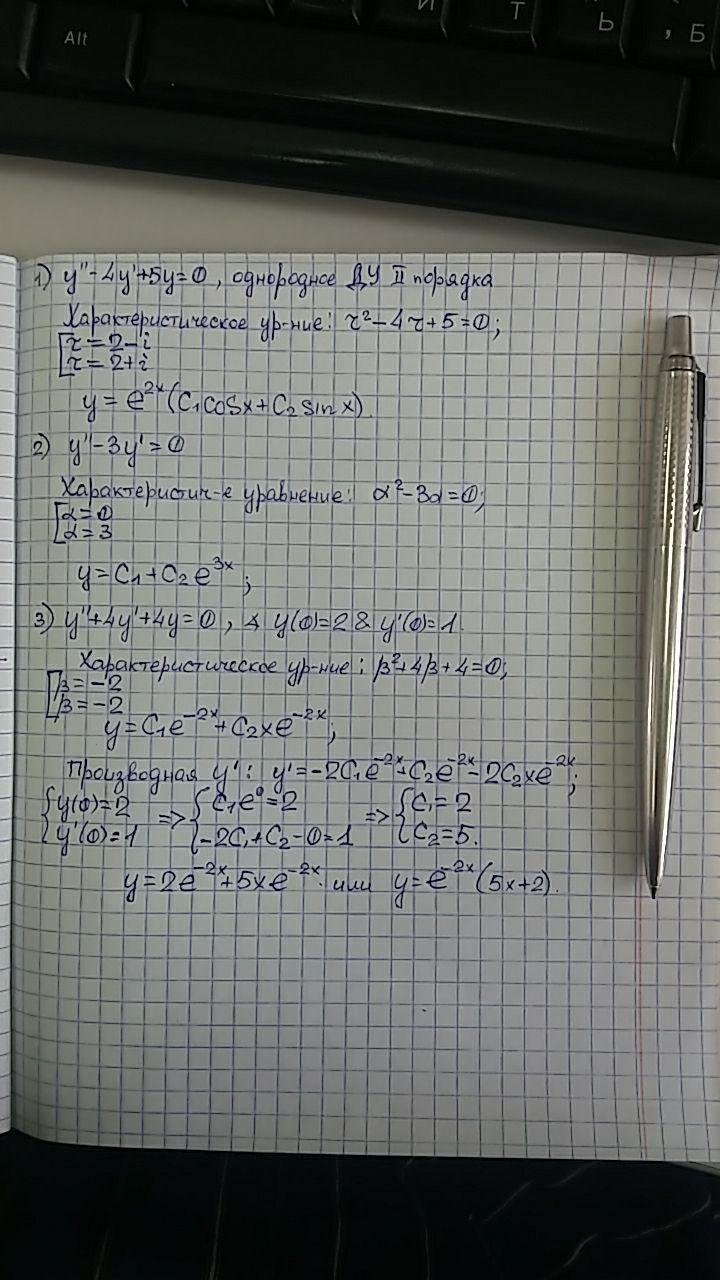 Alt
И
Т
Ь
, Б
1) y''-4y'+5y=0, однородное ДУ II порядка
Характеристическое ур-ние: τ²-4τ+5=0;
[τ=2-i
[τ=2+i
y=e^{2x}(C₁cosx+C₂sinx).
2) y''-3y'=0
Характеристич-е уравнение: α²-3α=0;
[α=0
[α=3
y=C₁+C₂e^{3x};
3) y''+4y'+4y=0, ∡ y(0)=2 & y'(0)=1.
Характеристическое ур-ние: β²+4β+4=0;
[β=-2
[β=-2
y=C₁e^{-2x}+C₂xe^{-2x};
Производная y': y'=-2C₁e^{-2x}+C₂e^{-2x}-2C₂xe^{-2x};
{y(0)=2 => {C₁e⁰=2 => {C₁=2
{y'(0)=1 {-2C₁+C₂-0=1 {C₂=5.
y=2e^{-2x}+5xe^{-2x}. или y=e^{-2x}(5x+2).